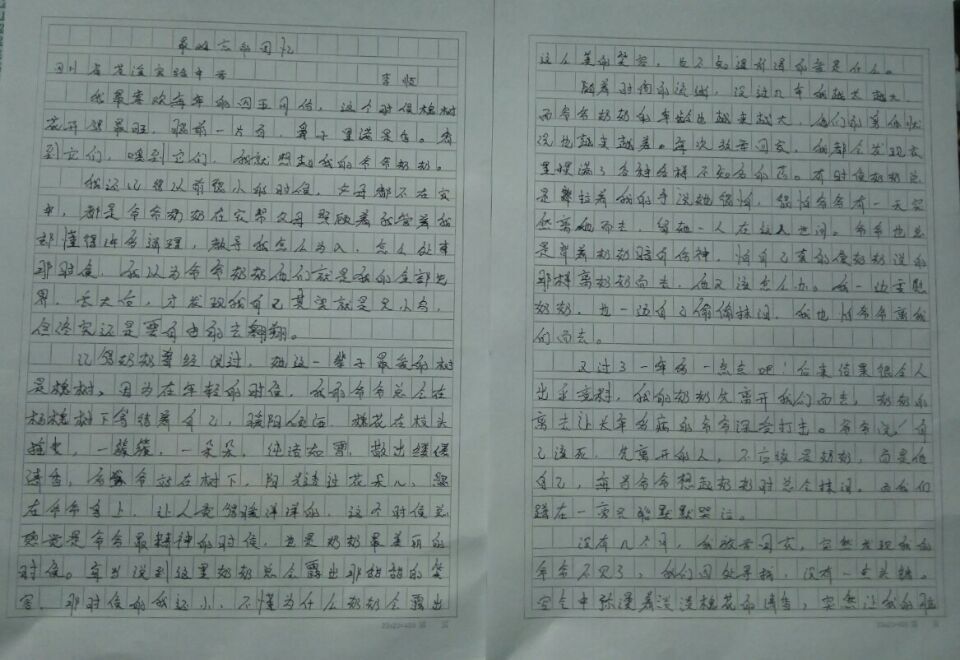 最难忘的回忆
四川省 实验中学 李
我最喜欢每年的四五月份，这个时候槐树
花开得最旺，眼前一片 ，鼻子里满是香。看
到它们，嗅到它们，我就想起我的爷爷奶奶。
我还记得以前很小的时候，父母都不在家
中，都是爷爷奶奶在家帮父母照顾着我 着我
却懂得许多道理，教导我怎么为人，怎么处事
那时候，我以为爷爷奶奶他们就是我的全部世
界，长大后，才发现我自己其实就是只小鸟，
但终究还是要自由的去翱翔。
记得奶奶曾经说过，她这一辈子最爱的树
是槐树。因为在年轻的时候，我的爷爷总会在
杨槐树下等待着自己，暖阳倾洒，槐花在枝头
，一簇簇，一朵朵，纯洁如雪，散出缕缕
清香，爷爷站在树下，阳光透过花朵儿，照
在爷爷身上，让人觉得暖洋洋的，这个时候总
感觉是爷爷最精神的时候，也是奶奶最美丽的
时候。每当说到这里奶奶总会露出那甜甜的笑
容，那时候的我还小，不懂为什么奶奶会露出
这人美的笑容，也不知道所谓的爱是什么。
随着时间的流逝，没过几年我越来越大，
而爷爷奶奶的年龄也越来越大，他们的身体状
况也越来越差。每次放学回家，我都会发现家
里摆满了各种各样不知名的药。有时候奶奶总
是拉着我的手说她很怕，很怕爷爷有一天突
然离她而去，留她一人在这人世间。爷爷也总
是牵着奶奶暗自伤神，怕自己真的像奶奶说的
那样离奶奶而去，他又该怎么办。我一边安慰
奶奶，也一边自己偷偷抹泪，我也怕爷爷离我
们而去。
又过了一年多一点点吧！后来结果很令人
出乎意料，我的奶奶先离开我们而去，奶奶的
离去让长年多病的爷爷深受打击。爷爷说：自
己该死，先离开的人，不应该是奶奶，而是他
自己，每当爷爷想起奶奶时总会抹泪。而我们
蹲在一旁只能默默哭泣。
没有几个月，我放学回家，突然发现我的
爷爷不见了，我们四处寻找，没有一点头绪。
空气中弥漫着淡淡槐花的清香，突然让我的脑